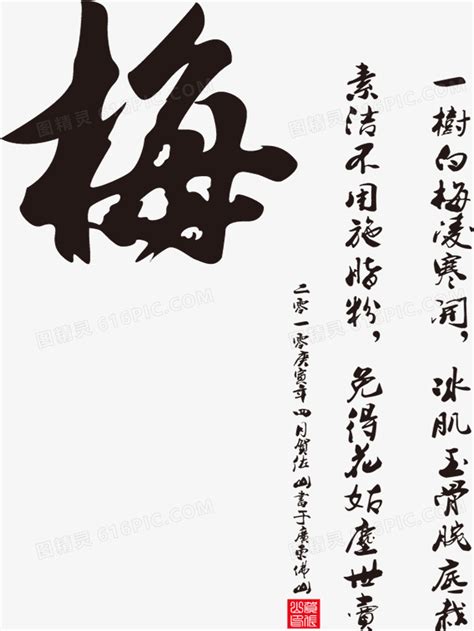 梅
一樹白梅凌寒開，冰肌玉骨腕底栽
素洁不用施脂粉，免得花姑塵世賣
二零一零庚寅年四月賀山書于廣東佛山
图精灵 616PIC.COM
图精灵 616PIC.COM
图精灵 616PIC.COM
图精灵 616PIC.COM